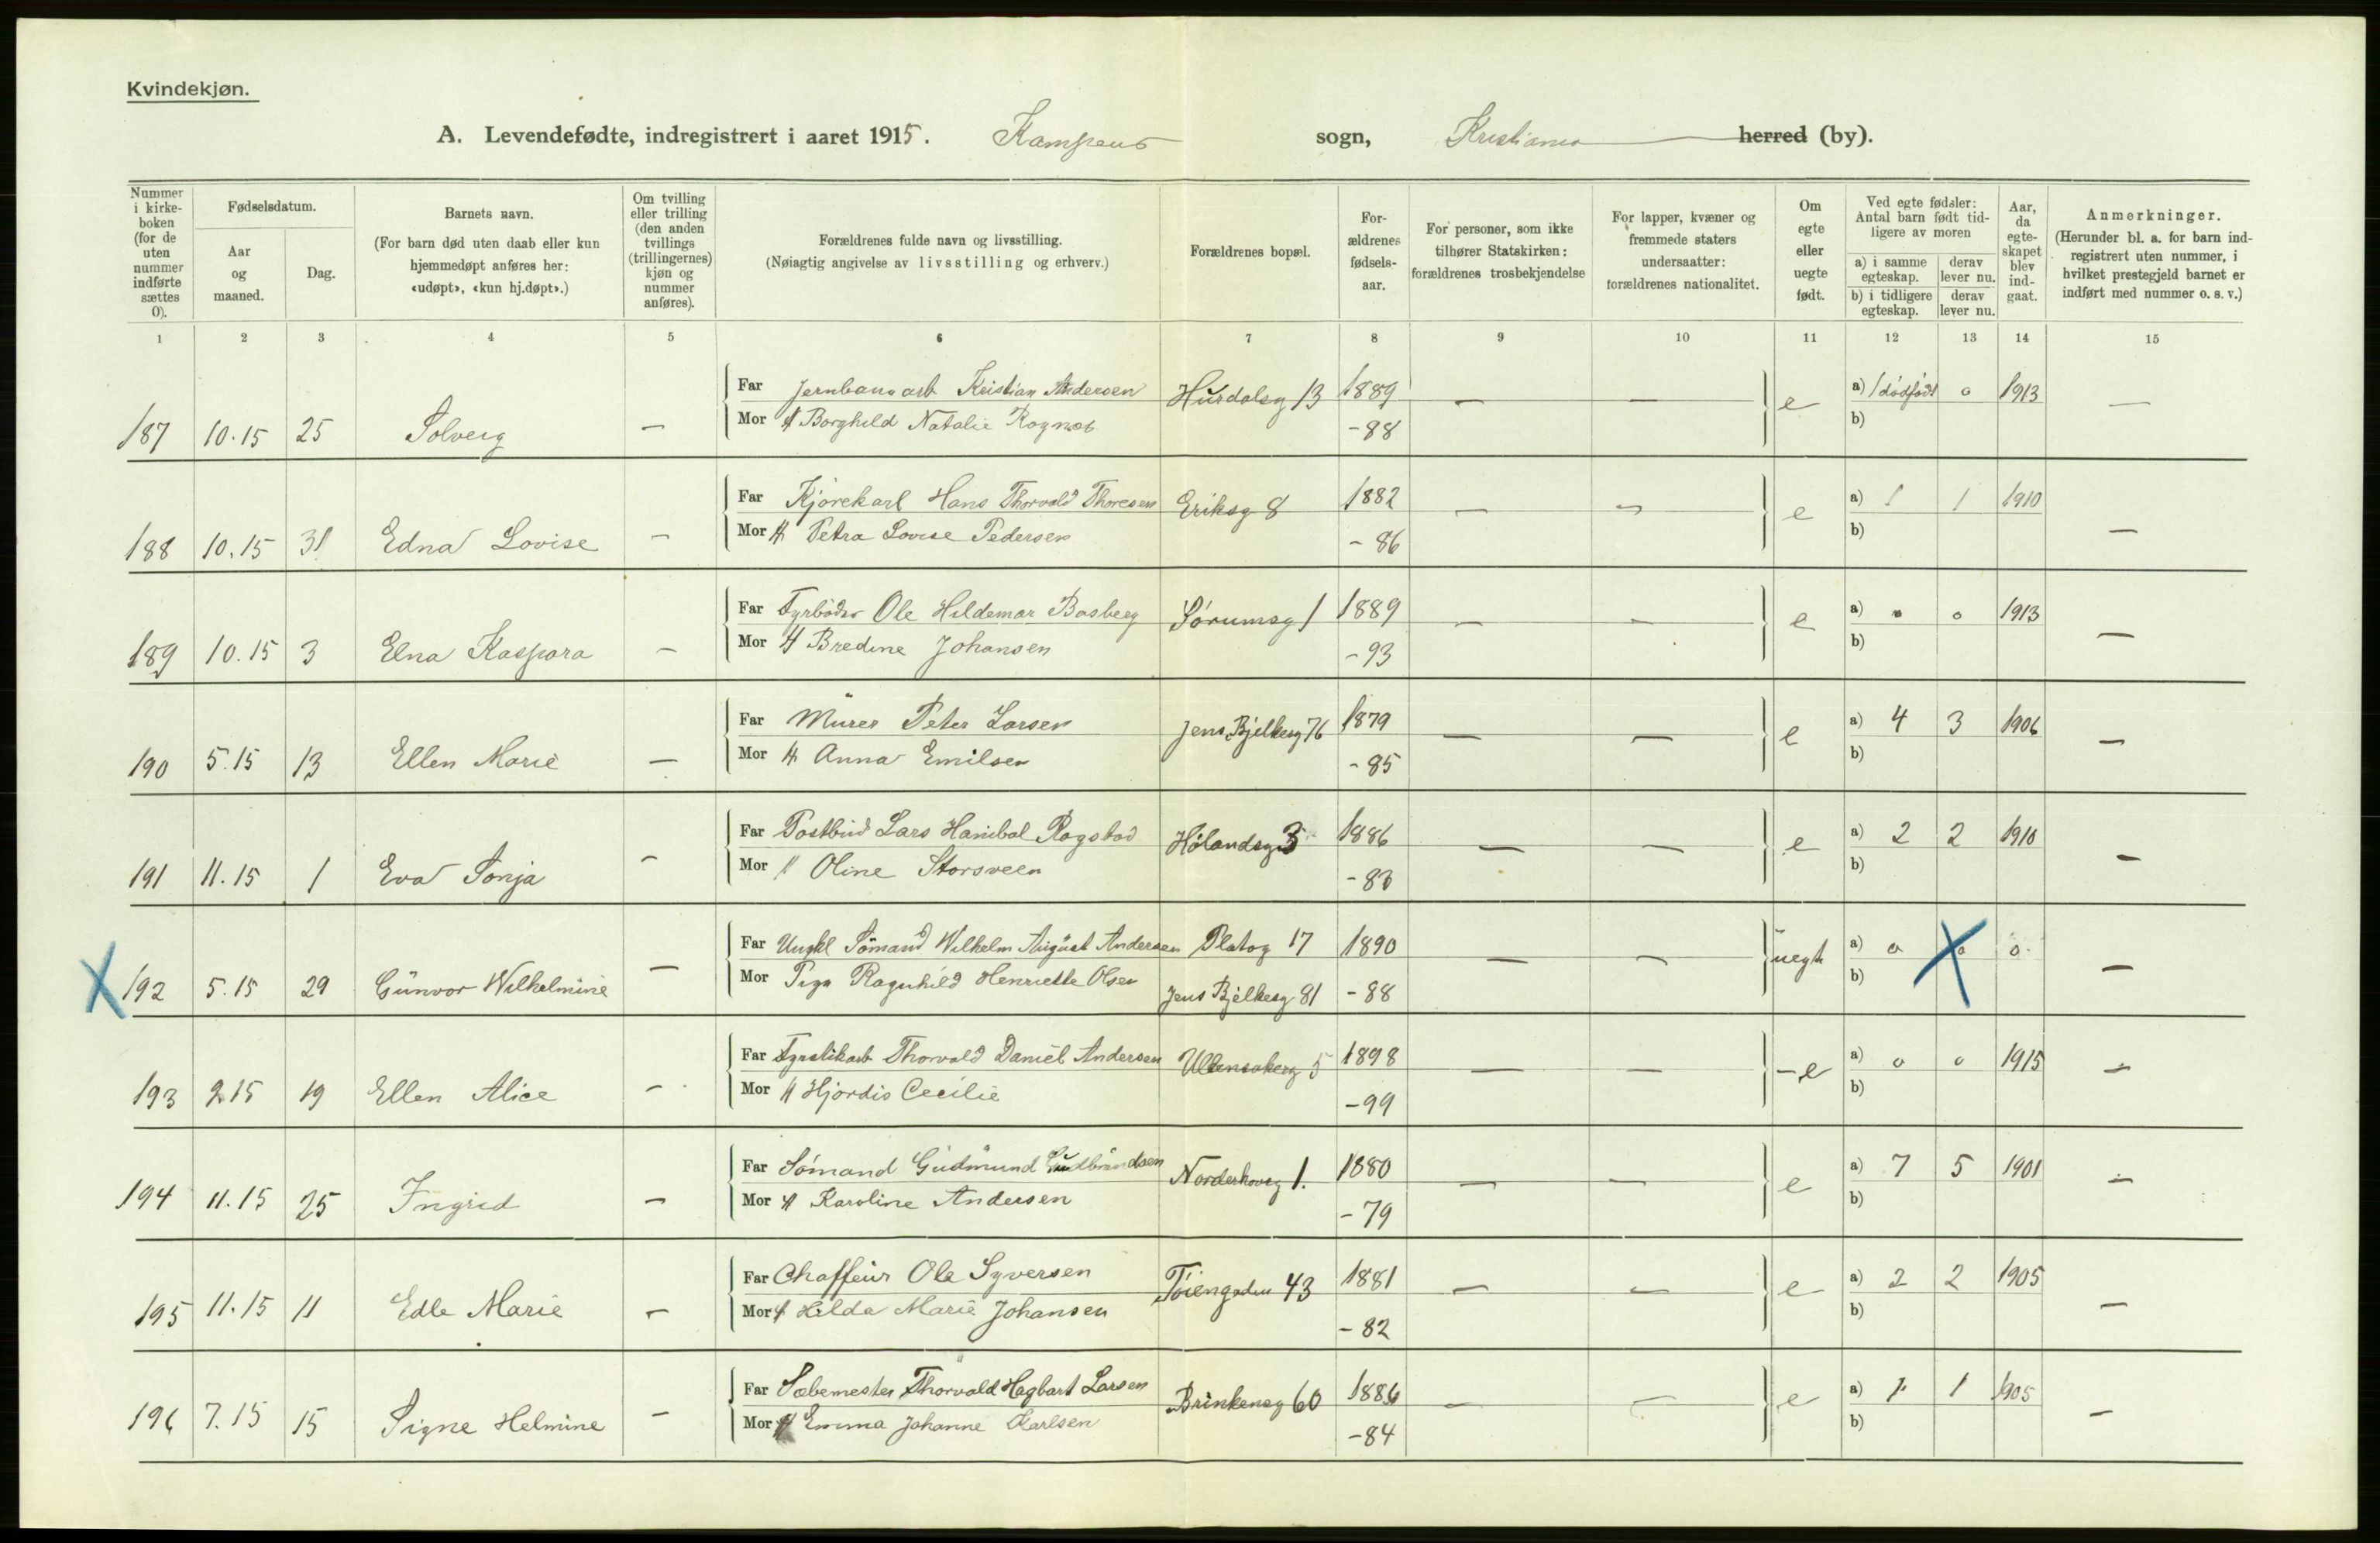 Kvindekjøn.
A. Levendefødte, indregistrert i aaret 1915. Kampens sogn, Kristiania herred (by).
Nummer i kirkeboken (for de uten nummer indførte sættes 0).
Fødselsdatum.
Aar og maaned.
Dag.
Barnets navn.
(For barn død uten daab eller kun hjemmedøpt anføres her: «udøpt», «kun hj.døpt».)
Om tvilling eller trilling (den anden tvillings (trillingernes) kjøn og nummer anføres).
Forældrenes fulde navn og livsstilling.
(Nøiagtig angivelse av livsstilling og erhverv.)
Forældrenes bopæl.
Forældrenes fødselsaar.
For personer, som ikke tilhører Statskirken: forældrenes trosbekjendelse
For lapper, kvæner og fremmede staters undersaatter: forældrenes nationalitet.
Om egte eller uegte født.
Ved egte fødsler: Antal barn født tidligere av moren
a) i samme egteskap. derav lever nu.
b) i tidligere egteskap. derav lever nu.
Aar, da egteskapet blev indgaat.
Anmerkninger.
(Herunder bl. a. for barn indregistrert uten nummer, i hvilket prestegjeld barnet er indført med nummer o. s. v.)
1 2 3 4 5 6 7 8 9 10 11 12 13 14 15
Far Jernbanearb Kristian Andersen Hurdalsg 13 1889 — — e a) 1 dødfødt 0 1913 —
187 10.15 25 Solveig — Mor H Borghild Natalie -88 b)
Far Kjørekarl Hans Thorvald Thoresen Eriksg 8 1882 — — e a) 1 1 1910
188 10.15 31 Edna Lovise — Mor H Petra Lovise Pedersen - 86 b) —
Far Fyrbøder Ole Hildemar Basberg Sørumsg 1 1889 — — e a) 0 0 1913
189 10.15 3 Elna Kaspara — Mor H Bredine Johansen -93 b) —
Far Murer Peter Larsen Jens Bjelkesg 76 1879 — — e a) 4 3 1906
190 5.15 13 Ellen Marie — Mor H Anna Emilsen - 85 b) —
Far Postbud Lars Hanibal Rogstad Hølandsg 3 1886 — — e a) 2 2 1910
191 11.15 1 Eva Sonja — Mor H Oline Storsveen b) —
Far Ungkl Sømand Wilhelm August Andersen Platog 17 1890 — — uegte a) 0 0 0
X 192 5.15 29 Gunvor Wilhelmine — Mor Pige Ragnhild Henriette Olsen Jens Bjelkesg 81 - 88 b) X —
Far Thorvald Daniel Andersen Ullensakerg 5 1898 — — - e a) 0 0 1915
193 2.15 19 Ellen Alice — Mor H Hjordis Cecilie -99 b) —
Far Sømand Gudmund Gudbrandsen Norderhovg 1. 1880 — — e a) 7 5 1901
194 11.15 25 Ingrid — Mor H Karoline Andersen - 79 b) —
Far Chaffeur Ole Syversen Tøiengaden 43 1881 — — e a) 2 2 1905
195 11.15 11 Edle Marie — Mor H Hilda Marie Johansen - 82 b) —
Far Sæbemester Thorvald Hagbart Larsen Brinkensg 60 1886 — — e a) 1 1 1905
196 7.15 15 Signe Helmine — Mor H Emma Johanne Karlsen -84 b) —